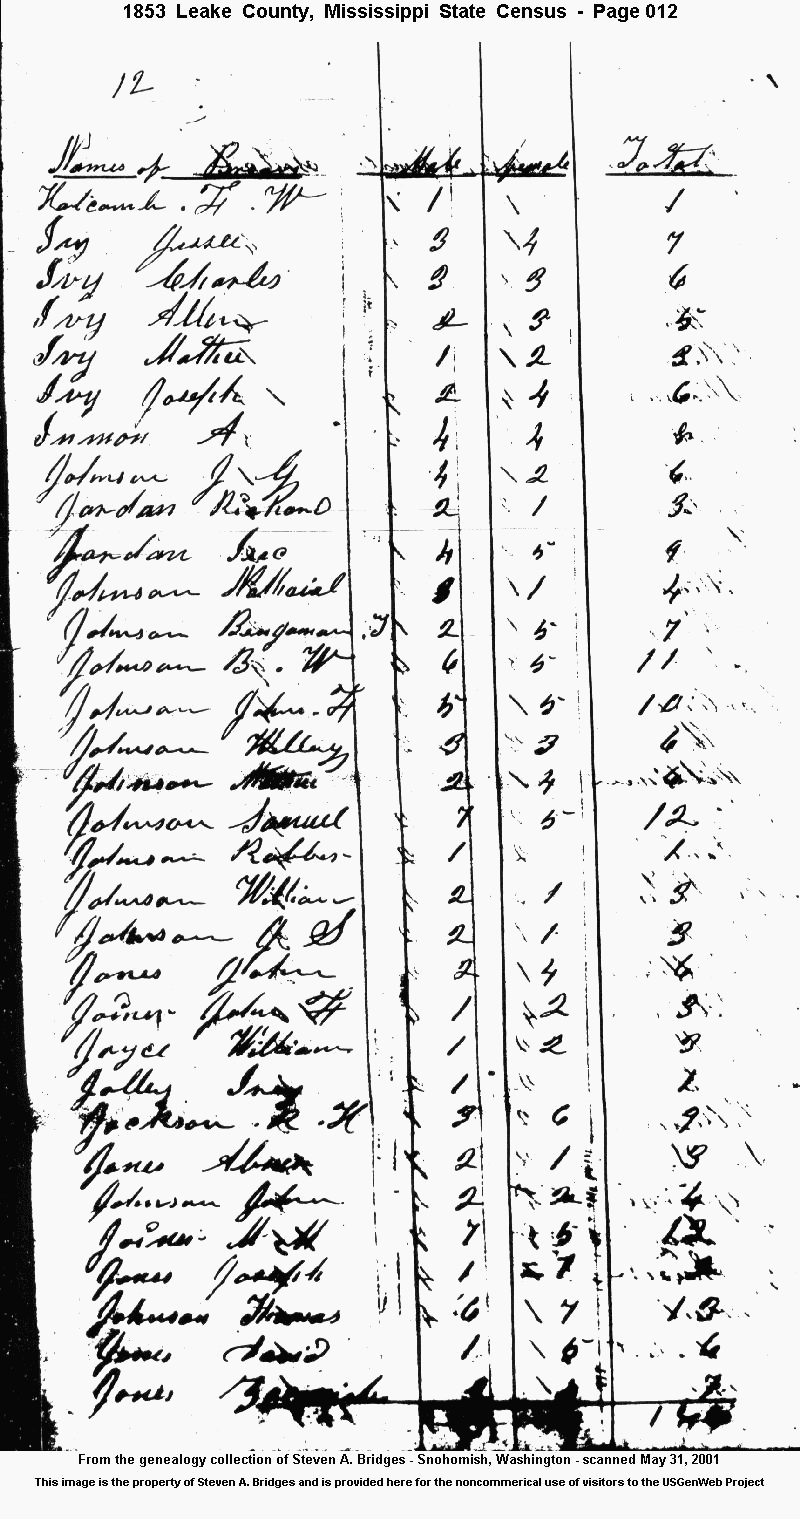 1853 Leake County, Mississippi State Census - Page 012
12
Names of Male female Total
Holcomb . F . W 1 1
Ivy Jessee 3 4 7
Ivy Charles 3 3 6
Ivy Allen 2 3 5
Ivy Mathew 1 2 3
Ivy Joseph 2 4 6
Inmon A 4 4 8
Johnson J G 4 2 6
Jordan Richard 2 1 3
Jordan Isac 4 5 9
Johnson Nathaial 3 1 4
Johnson Bengaman . J 2 5 7
Johnson B . W 6 5 11
Johnson John . F 5 5 10
Johnson Willey 3 3 6
Johnson 2 4 6
Johnson Samuel 7 5 12
Johnson 1 1
Johnson William 2 1 3
Johnson J S 2 1 3
Jones John 2 4 6
Joiner John F 1 2 3
Joyce William 1 2 3
Jolley 1 1
Jackson . R . H 3 6 9
Jones Abner 2 1 3
Johnson John 2 2 4
Joiner M 7 5 12
Jones Joseph 1 7
Johnson Thomas 6 7 13
Jones David 1 5 6
Jones 7
From the genealogy collection of Steven A. Bridges - Snohomish, Washington - scanned May 31, 2001
This image is the property of Steven A. Bridges and is provided here for the noncommerical use of visitors to the USGenWeb Project